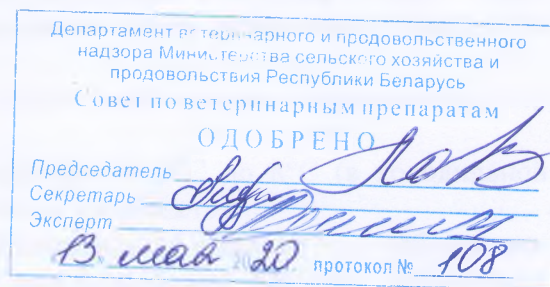 Департамент ветеринарного и продовольственного
надзора Министерства сельского хозяйства и
продовольствия Республики Беларусь
Совет по ветеринарным препаратам
ОДОБРЕНО
Председатель
Секретарь
Эксперт
13 мая 2020 протокол № 108